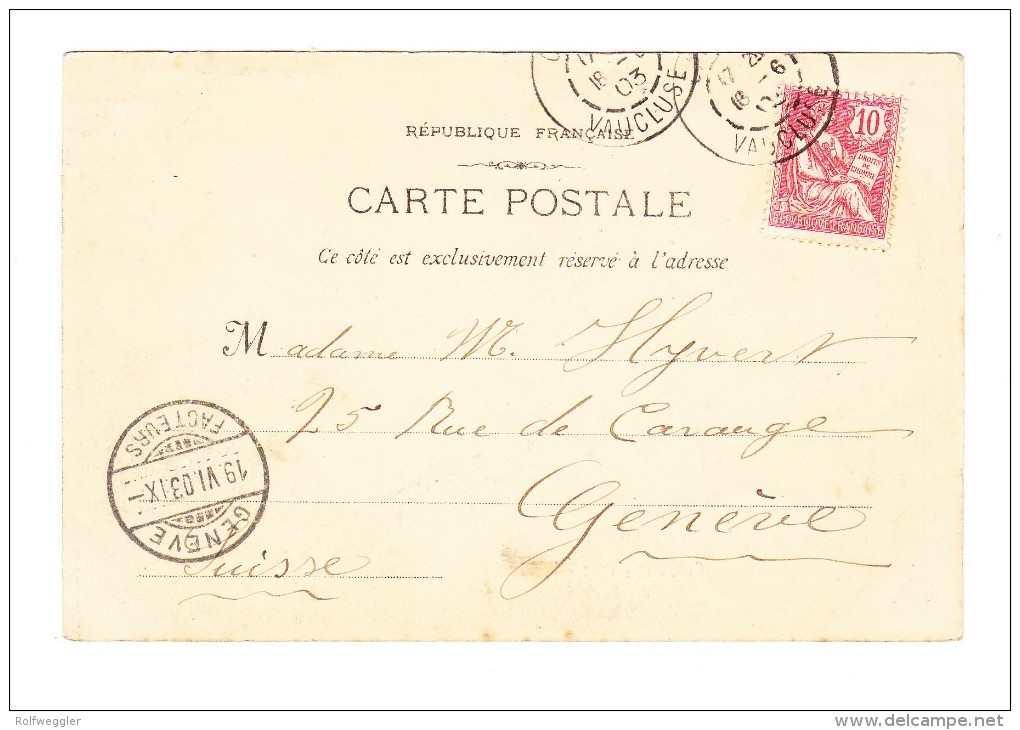 17
18
03
VAUCLUSE
17
18
6
VAUCLUSE
POSTES
10
DROITS
DE
L'HOMME
REPUBLIQUE FRANÇAISE
RÉPUBLIQUE FRANÇAISE
CARTE POSTALE
Ce côté est exclusivement réservé à l'adresse
Madame M. Hyvert
25 Rue de Carouge
Genève
Suisse
FACTEURS
19.VI.03.IX-
GENÈVE
Rolfweggler
www.delcampe.net